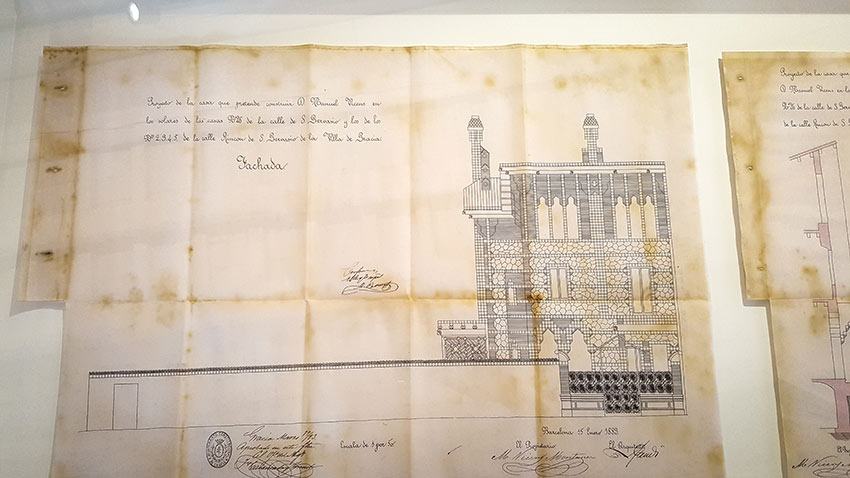 Proyecto de la casa que pretende construir D. Manuel Vicens en
los solares de las casas Nº de la calle de S. Gervasio y los de los
Nos 2.3.4.5. de la calle Rincon de S. Gervasio de la Villa de Gracia:
Fachada
Gracia Marzo
Escala de 1 por 50
Barcelona 15 Enero 1883.
El Propietario
El Arquitecto
M. Vicens Montaner
Gaudí
Proyecto de la casa que
D. Manuel Vicens en lo
de la calle de S. Ger
de la calle Rincon de S.
M. Vicens Mon